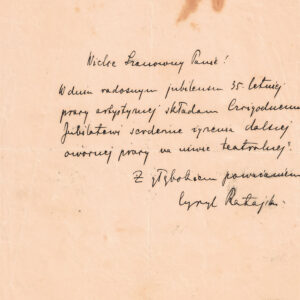 Wielce Szanowny Panie!
W dniu radosnym jubileuszu 35 letniej
pracy artystycznej składam Czcigodnemu
Jubilatowi serdeczne życzenia dalszej
owocnej pracy na niwie teatralnej.
Z głębokiem poważaniem
Cyryl Ratajski